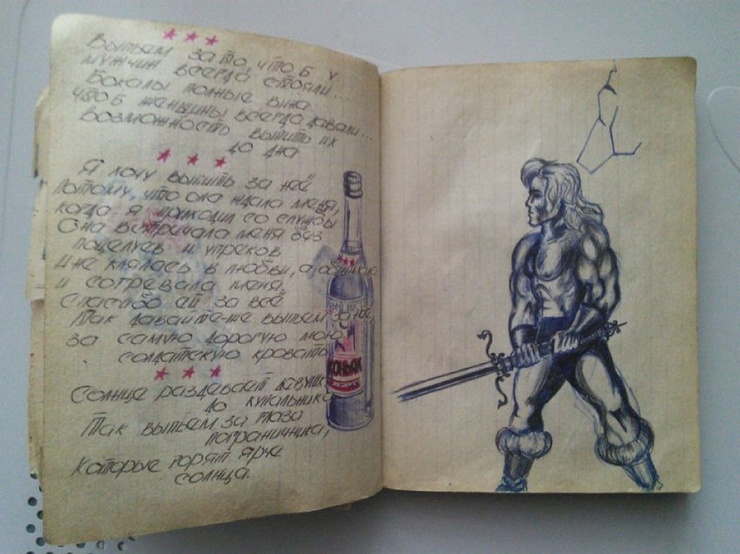 Выпьем за то, что б у
мужчин всегда стояли...
Бокалы полные вина
что б женщины всегда давали...
Возможность выпить их
до дна
Я хочу выпить за неё
потому, что она ждала меня,
когда я приходил со службы
Она встречала меня без
поцелуев и упрёков
и не клялась в любви, а
и согревала меня,
спасибо ей за всё
Так давайте-же выпьем за неё,
за самую дорогую мою
солдатскую кровать
Солнце раздевает девушк
до купальника
Так выпьем за глаза
пограничника,
Которые горят ярче
солнца.
КОНЬЯК